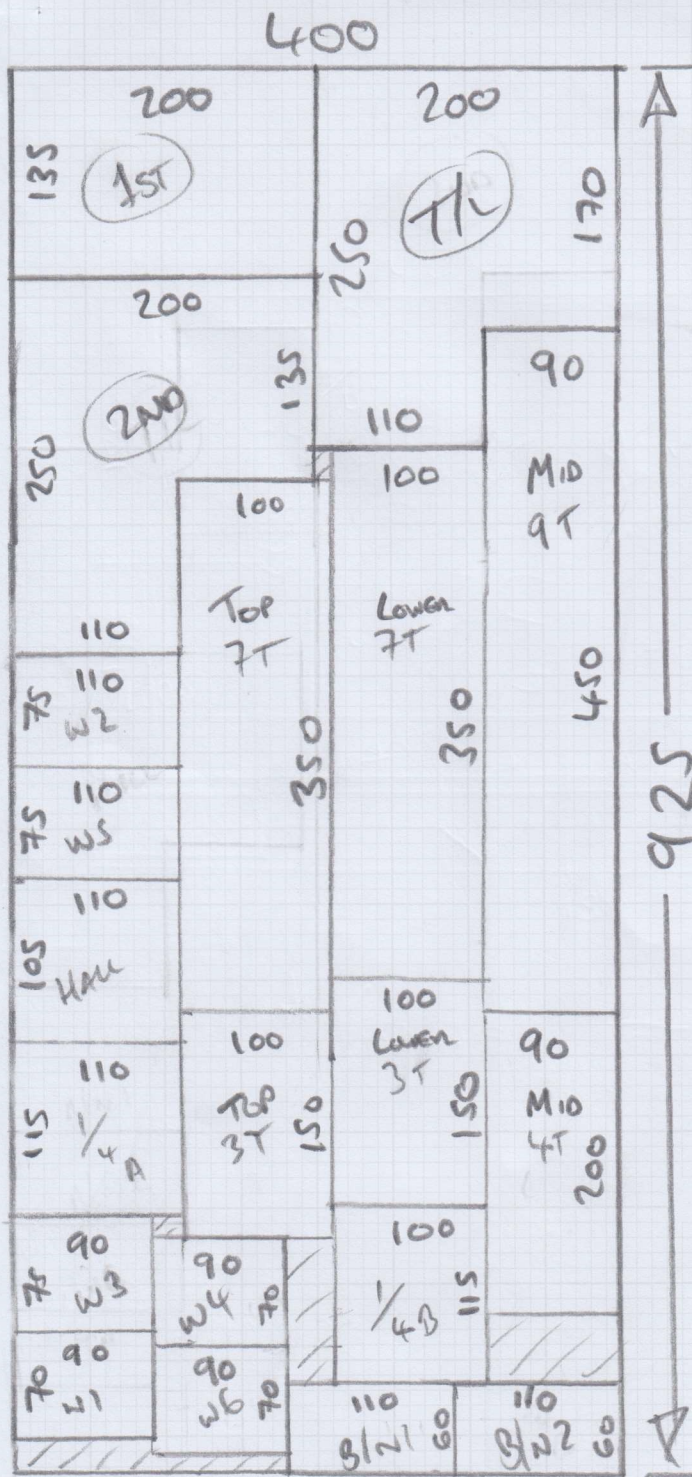 400
200
135
1ST
200
T/L
250
170
200
2ND
135
250
110
110
90
MID
9T
450
100
TOP
7T
350
100
LOWER
7T
350
925
75
110
W2
75
110
W5
110
105
HALL
110
115
1/4 A
100
TOP
3T
150
100
LOWER
3T
150
90
MID
4T
200
90
75
W3
90
W4
70
100
1/4 B
115
90
70
W1
90
W6
70
110
B/N1
60
110
B/N2
60